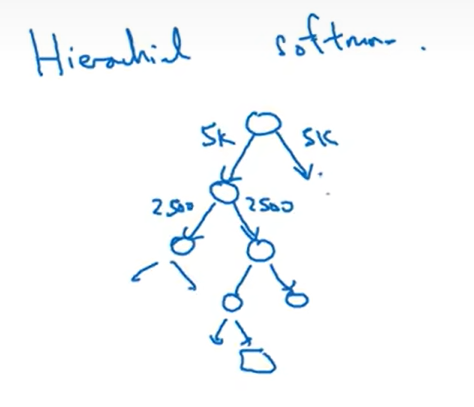 Hierarchial softmax.
5k 5k
2500 2500